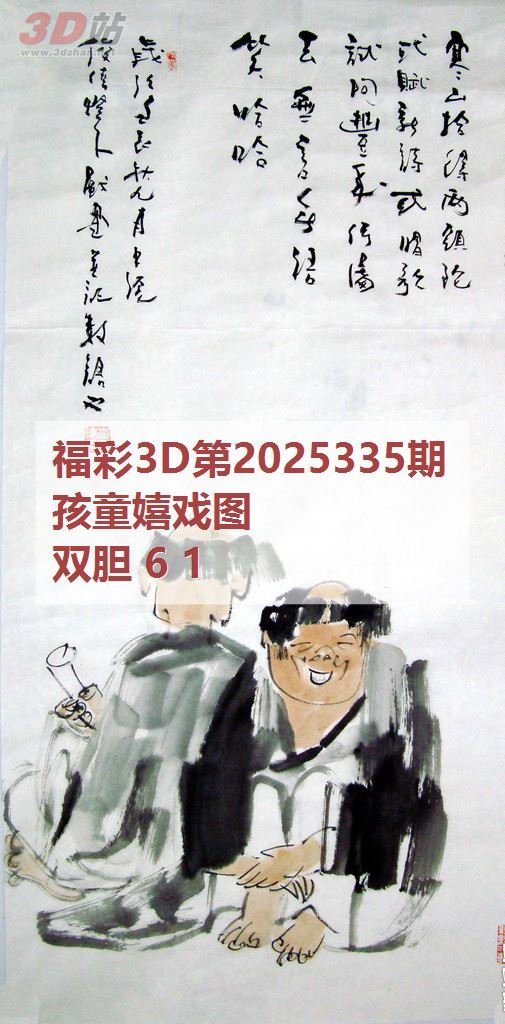 3D站
www.3dzhan.net
寒山拾得两头陀
或赋新诗或唱歌
试问丰干何
云无言无语
笑哈哈
岁次壬辰秋九月中浣
戏画并记数语也
福彩3D第2025335期
孩童嬉戏图
双胆 6 1